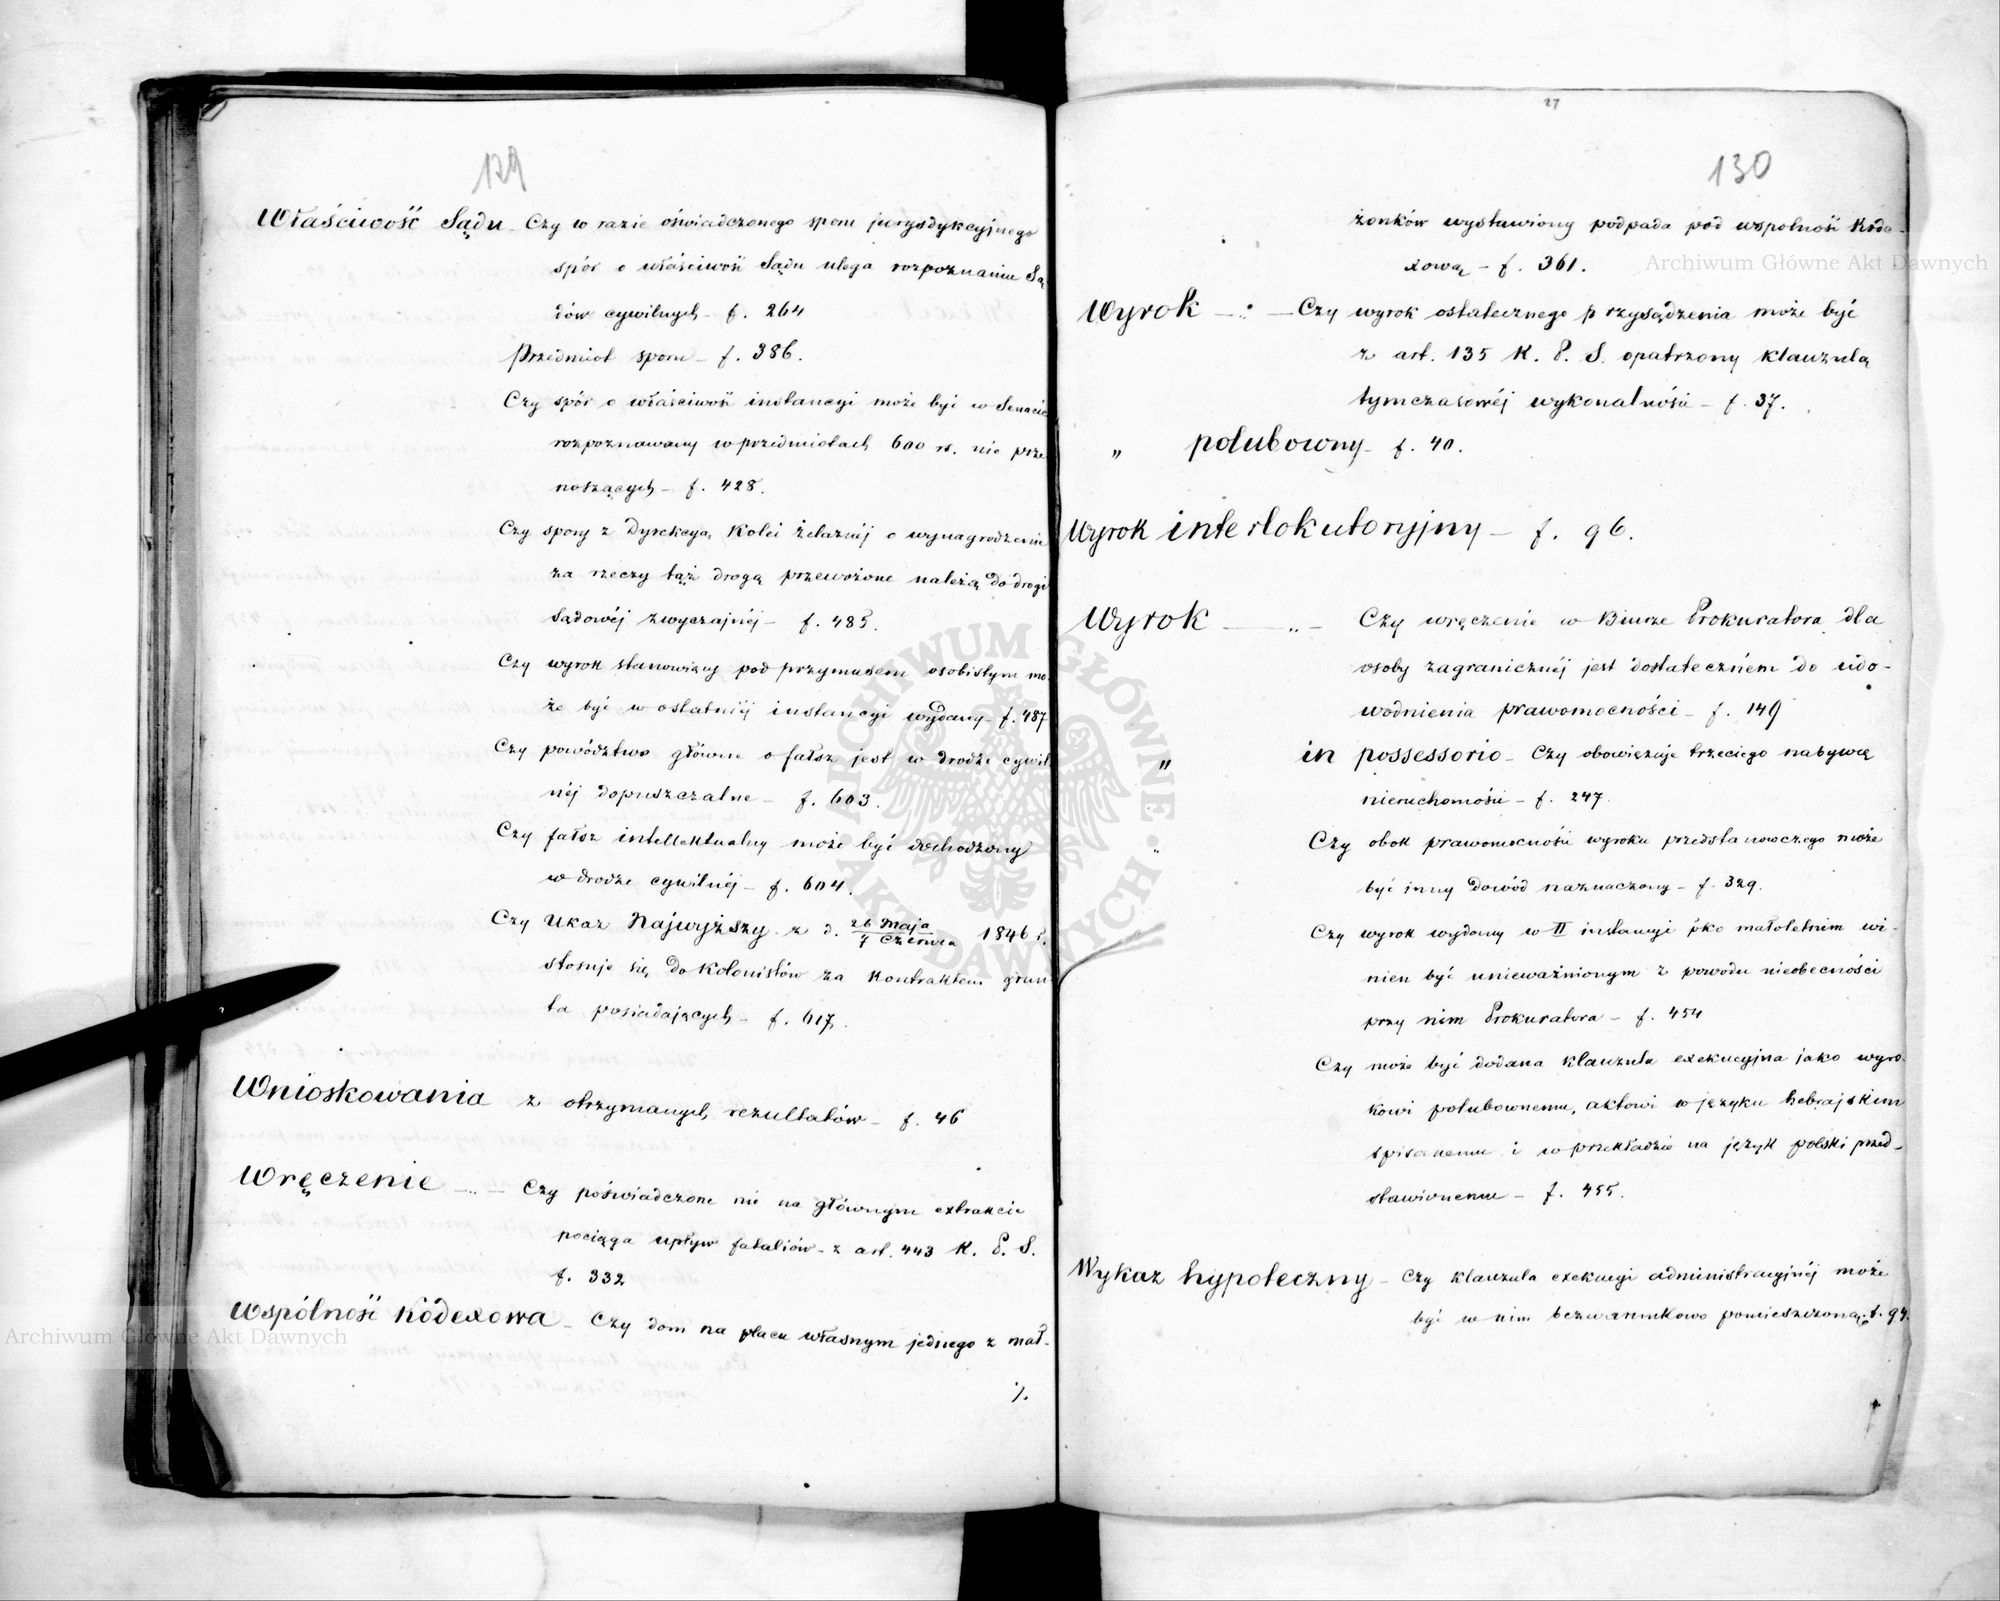 129
Właściwość Sądu Czy w razie oświadczonego sporu jurysdykcyjnego
spór o właściwość Sądu ulega rozpoznaniu Są
dów cywilnych – f. 264
Przedmiot sporu – f. 386.
Czy spór o właściwość instancyi może być w Senacie
rozpoznawany w przedmiotach 600 rs. nie prze
noszących – f. 428.
Czy spory z Dyrekcyą Kolei Żelaznéj o wynagrodzenie
za rzeczy tąż drogą przewożone należą do drogi
Sądowéj zwyczajnéj – f. 485.
Czy wyrok stanowiący pod przymusem osobistym mo
że być w ostatniéj instancyi wydany – f. 487
Czy powództwo główne o fałsz jest w drodze cywil
néj dopuszczalne – f. 603.
Czy fałsz intellektualny może być dochodzony
w drodze cywilnéj – f. 604.
Czy Ukaz Najwyższy z d. 26 Maja / 7 Czerwca 1846 r.
stosuje się do Kolonistów za Kontraktem grun
ta posiadających – f. 617.
Wnioskowania z otrzymanych rezultatów – f. 46
Wręczenie –..– Czy poświadczone nie na głównym extrakcie
pociąga upływ fataliów – z art. 443 K. P. S.
f. 332
Wspólność Kodexowa – Czy dom na placu własnym jednego z mał-
./.
27
130
żonków wystawiony podpada pod wspolność Kode-
xową – f. 361.
Wyrok –..– Czy wyrok ostatecznego przysądzenia może być
z art. 135 K. P. S. opatrzony klauzulą
tymczasowéj wykonalności – f. 37.
„ polubowny – f. 40.
Wyrok interlokutoryjny – f. 96.
Wyrok –..– Czy wręczenie w Biurze Prokuratora dla
osoby zagranicznéj jest dostateczném do udo-
wodnienia prawomocności – f. 149
„ in possessorio – Czy obowięzuje trzeciego nabywcę
nieruchomości – f. 247
„ Czy obok prawomocności wyroku przedstanowczego może
być inny dowód naznaczony – f. 329.
Czy wyrok wydany w II instancyi pko małoletnim wi-
nien być unieważnionym z powodu nieobecności
przy nim Prokuratora – f. 454
Czy może być dodana klauzula exekucyjna jako wyro-
kowi polubownemu, aktowi w języku hebrajskim
spisanemu i w przekładzie na język polski przed-
stawionemu – f. 455.
Wykaz hypoteczny – Czy klauzula exekucyi administracyjnéj może
być w nim bezwarunkowo pomieszczoną – f. 94.
Archiwum Główne Akt Dawnych
Archiwum Główne Akt Dawnych
ARCHIWUM GŁÓWNE AKT DAWNYCH